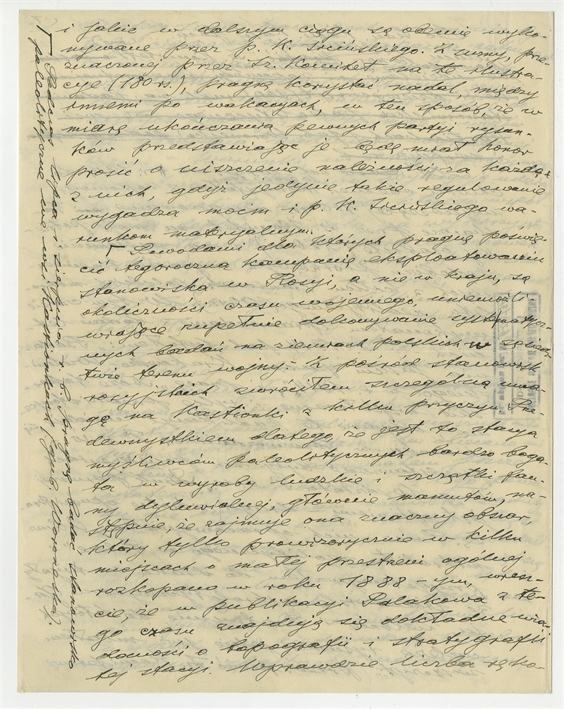 i jakie w dalszym ciągu są obecnie wyko-
nywane przez p. K.
znaczonej przez Sz. Komitet na te ilustra-
cye (180 rs.), pragnę korzystać nadal, między
innemi po wakacyach, w ten sposób, że w
miarę ukończania pewnych partyi rysun-
ków przedstawiając je będę miał honor
prosić o uiszczenie należności za każdą
z nich, gdyż jedynie takie regulowanie
wygadza moim i p. K. wa-
runkom materyalnym.
Powodami dla których pragnę poświę-
cić tegoroczną kampanię eksploatowaniu
stanowiska w Rosyi, a nie w kraju, są
okoliczności czasu wojennego, uniemożli-
wiające zupełnie dokonywanie systematycz-
nych badań na ziemiach polskich w
terenu wojny. Z pośród stanowisk
rosyjskich zwróciłem szczególną uwa-
gę na Kostionki z kilku przyczyn. Prze-
dewszystkiem dlatego, że jest to stacya
myśliwców paleolitycznych bardzo boga-
ta w wyroby ludzkie i szczątki fau-
ny dyluwialnej, głównie mamutów, na-
stępnie, że zajmuje ona znaczny obszar,
który tylko prowizorycznie w kilku
miejscach o małej przestrzeni ogólnej
rozkopano w roku 1888-ym, wresz-
cie, że w publikacyi Polakowa z te-
go czasu znajdują się dokładne wia-
domości o topografii i stratygrafii
tej stacyi. Wprawdzie liczba ręko-
Podczas lipca i sierpnia r. b. pragnę badać stanowisko
paleolityczne we wsi Kostionkach, gub. Woroneskiej.